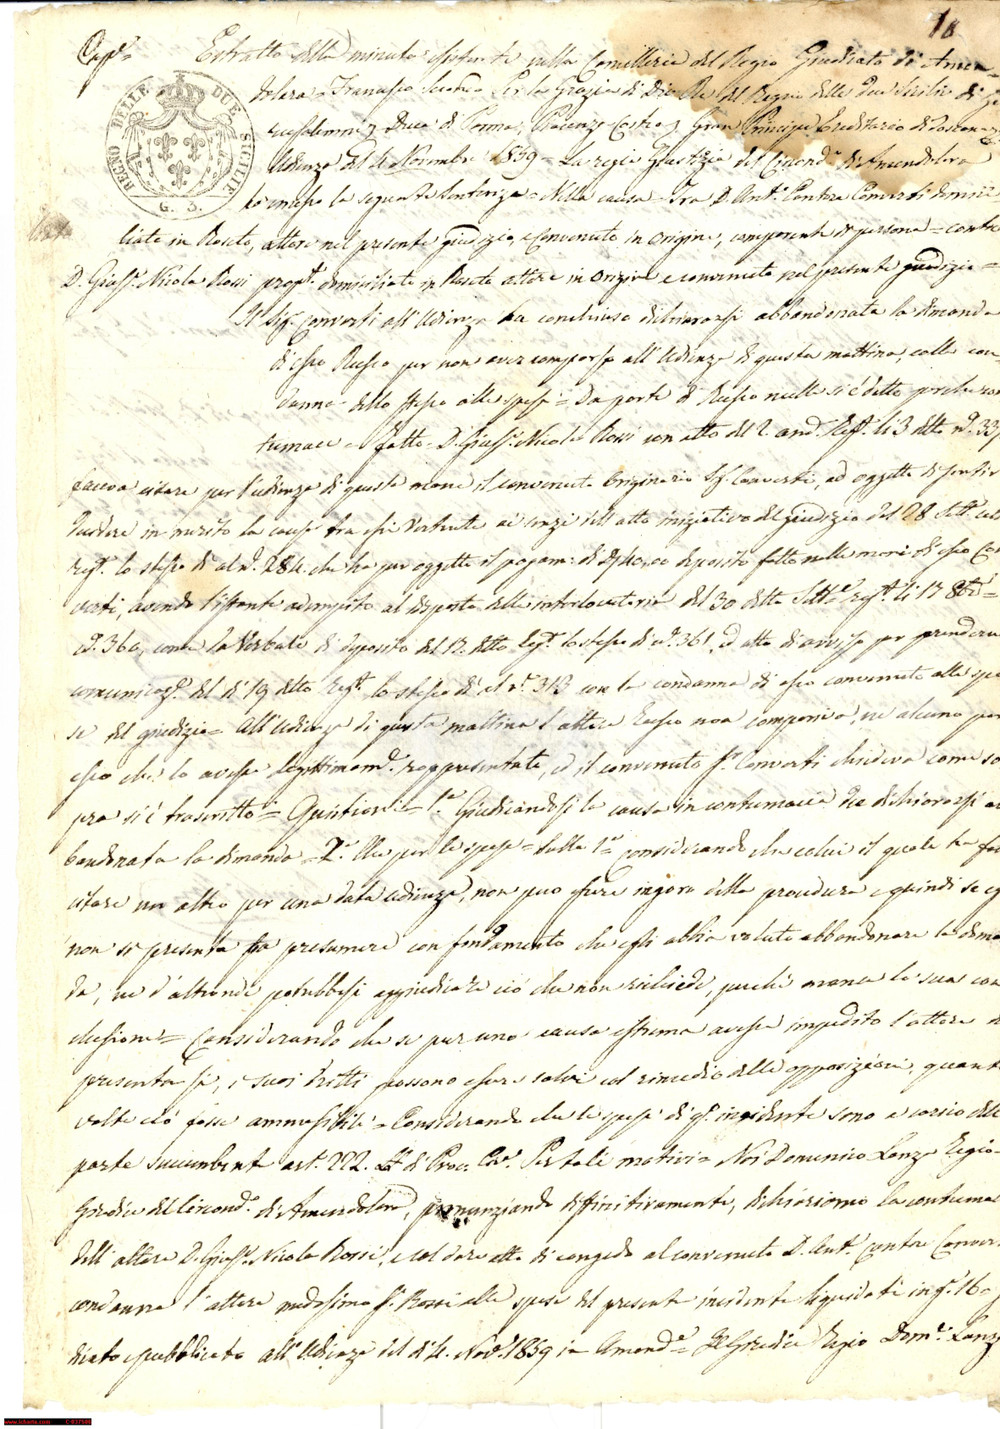 10
Estratto della minuta esistente nella Cancelleria del Regio Giudicato di Amen-
dolara = Francesco Secondo Per la Grazia di Dio Re del Regno delle due Sicilie di Ge
rusalemme Duca di Parma, Piacenza Castro, Gran Principe Ereditario di Toscana
REGNO DELLE DUE SICILIE
G. 3.
Udienza del 4 Novembre 1859 = La regia Giustizia del Circond.º di Amendolara
ha emesso la seguente Sentenza = Nella causa Tra D. Ant.º Contra Converti domici
liato in Roseto, attore nel presente giudizio, e convenuto in origine, comparente di persona = contro
D. Gius.e Nicola Rossi propr.º domiciliato in Roseto attore in origine e convenuto nel presente giudizio =
Il Sig.r Converti all'Udienza ha conchiuso dichiararsi abbandonata la dimanda
di esso Rossi per non aver comparso all'Udienza di questa mattina, colla con
danna dello stesso alle spese = Da parte di Rossi nulla si è detto perchè con
tumace = Fatto = D. Gius.e Nicola Rossi con atto del 2 and.e Reg.º li 3 detto n.º 337
faceva citare per l'udienza di questa mane il convenuto Originario Sig.r Converti, ad oggetto di sentir
decidere in merito la causa tra essi vertente ai sensi dell'atto iniziativo del giudizio del 28 Sett.e
reg.º lo stesso dì al n.º 284 che ha per oggetto il pagam.º di deposito fatto nelle mani di esso Con
verti, avendo l'istante adempito al disposto della interlocutoria del 30 detto Sett.e reg.º li 17 8bre
n.º 360, come da Verbale di deposito del 17 detto Reg.º lo stesso dì n.º 361, ed atto di avviso per prenderne
comunicaz.e del dì 19 detto reg.º lo stesso dì al n.º 313 con la condanna di esso convenuto alle spe
se del giudizio = All'Udienza di questa mattina l'attore Rossi non compariva, nè alcuno per
esso che lo avesse legittimam.e rappresentato, ed il convenuto S.r Converti chiedeva come so
pra si è trascritto = Quistioni = 1.a Giudicandosi la causa in contumacia dee dichiararsi ab
bandonata la dimanda = 2.a Che per le spese = Sulla 1.a considerando che colui il quale ha fatto
citare un altro per una data udienza, non può essere ignaro della procedura e quindi se egli
non si presenta fa presumere con fondamento che egli abbia voluto abbandonare la diman
da, nè d'altronde potrebbesi aggiudicare ciò che non richiede, perchè manca la sua con
chiusione = Considerando che se pur una causa estrema avesse impedito l'attore a
presentarsi, i suoi dritti possono essere salvi col rimedio delle opposizioni, quante
volte ciò fosse ammissibile = Considerando che le spese di q.º incidente sono a carico della
parte succumbente art. 222. LL. di Proc. Civ. Per tali motivi = Noi Domenico Lanza Regio
Giudice del Circond.º di Amendolara, pronunziando diffinitivamente, dichiariamo la contumacia
dell'attore D. Gius.e Nicola Rossi, e col dare atto di congedo al convenuto D. Ant.º Contra Conver
condanna l'attore medesimo S.r Rossi alle spese del presente incidente liquidate in
dicato e pubblicato all'Udienza del dì 4 Nov.e 1859 in Amend.a = Il Giudice Regio Dom.co Lanza
www.tcharta.com